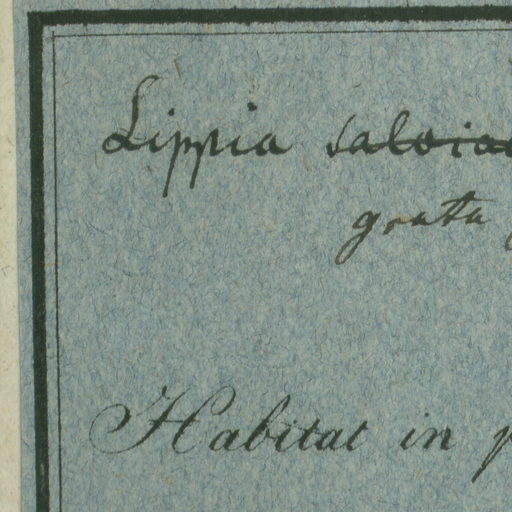 Lippia salviae
grata
Habitat in p